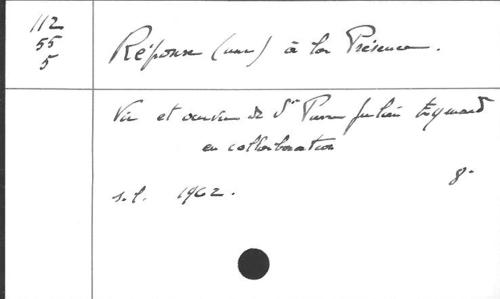 112
55
5
Réponse (une) à la Présence.
Vie et oeuvre de St Pierre Julien Eymard
en collaboration
8°
s.l. 1962.